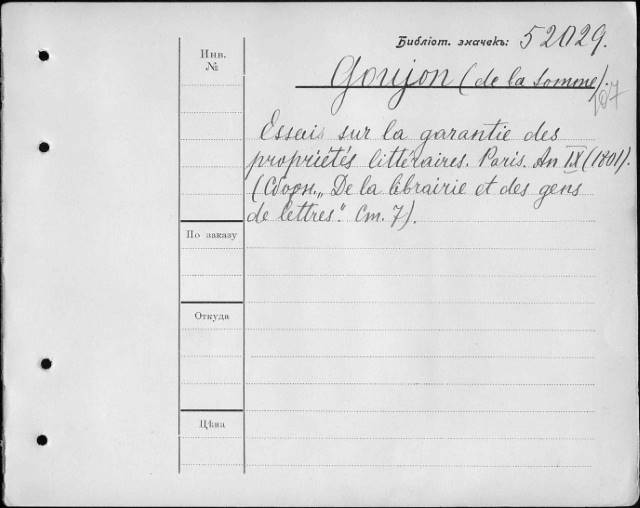 Библіот. значекъ: 52029.
Инв.
№
Goujon (de la Somme).
107
Essais sur la garantie des
propriétés littéraires. Paris. An IX (1801).
(Сборн. „De la librairie et des gens
de lettres“. Ст. 7).
По заказу
Откуда
Цѣна